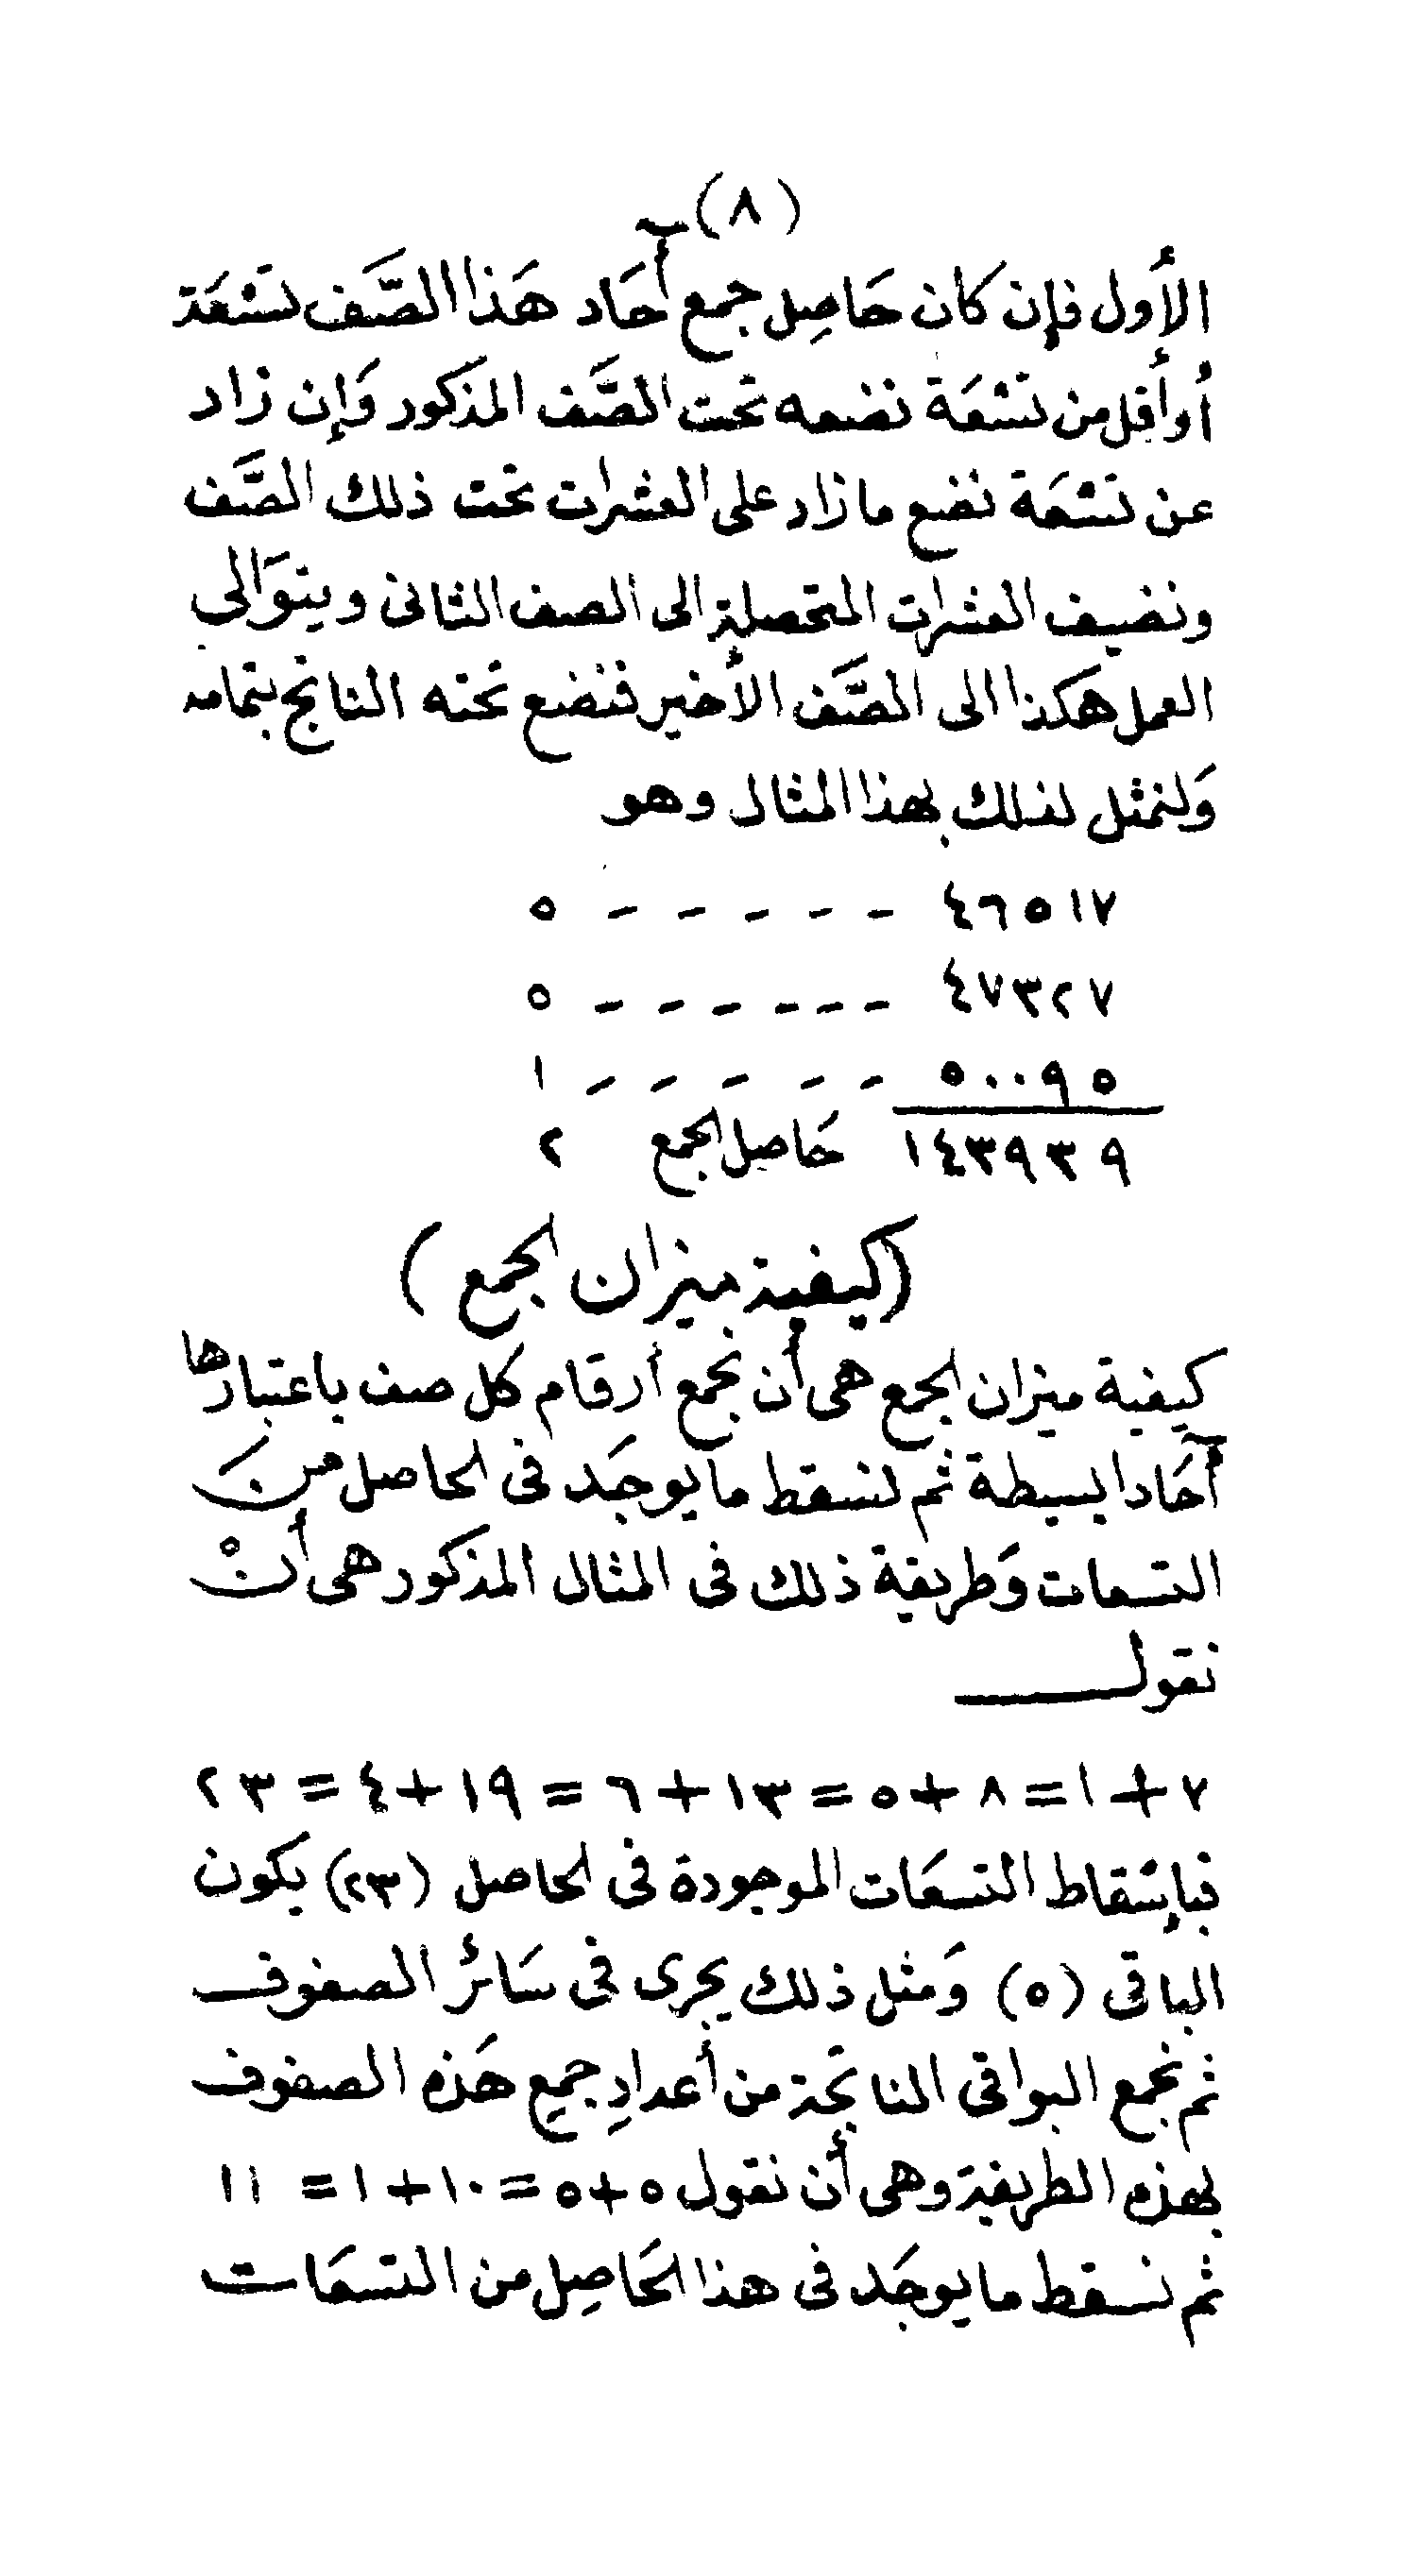 (٨)
الأول فإن كان حَاصِل جمع آحَاد هَذا الصَّف تسْعَة
أو أقل من تسْعَة نضعه تحت الصَّف المذكور وَإن زاد
عن تسْعَة نضع ما زاد على العشرات تحت ذلك الصَّف
ونضيف العشرات المتحصلة الى الصف الثانى ويتوَالى
العمل هكذا الى الصَّف الأخير فنضع تحته الناتج بتمامه
وَلنمثل لذلك بهذا المثال وهو
٤٦٥١٧ - - - - - ٥
٤٧٣٢٧ - - - - - - ٥
٥٠٠٩٥ - - - - - ١
١٤٣٩٣٩ حَاصل الجمع ٢
(كيفية ميزان الجمع)
كيفية ميزان الجمع هى أن نجمع أرقام كل صف باعتبارها
آحَادا بسيطة ثم نسقط ما يوجَد فى الحاصل منَ
التسعات وَطريقة ذلك فى المثال المذكور هى أنْ
نقول
٧+١=٨+٥=١٣+٦=١٩+٤=٢٣
فبإسْقاط التسعَات الموجودة فى الحاصل (٢٣) يكون
الباقى (٥) وَمثل ذلك يجرى فى سَائر الصفوف
ثم نجمع البواقى الناتجة من أعدادِ جميع هَذه الصفوف
بهذه الطريقة وهى أن نقول ٥+٥=١٠+١=١١
ثم نسقط ما يوجَد فى هذا الحَاصِل من التسعَات